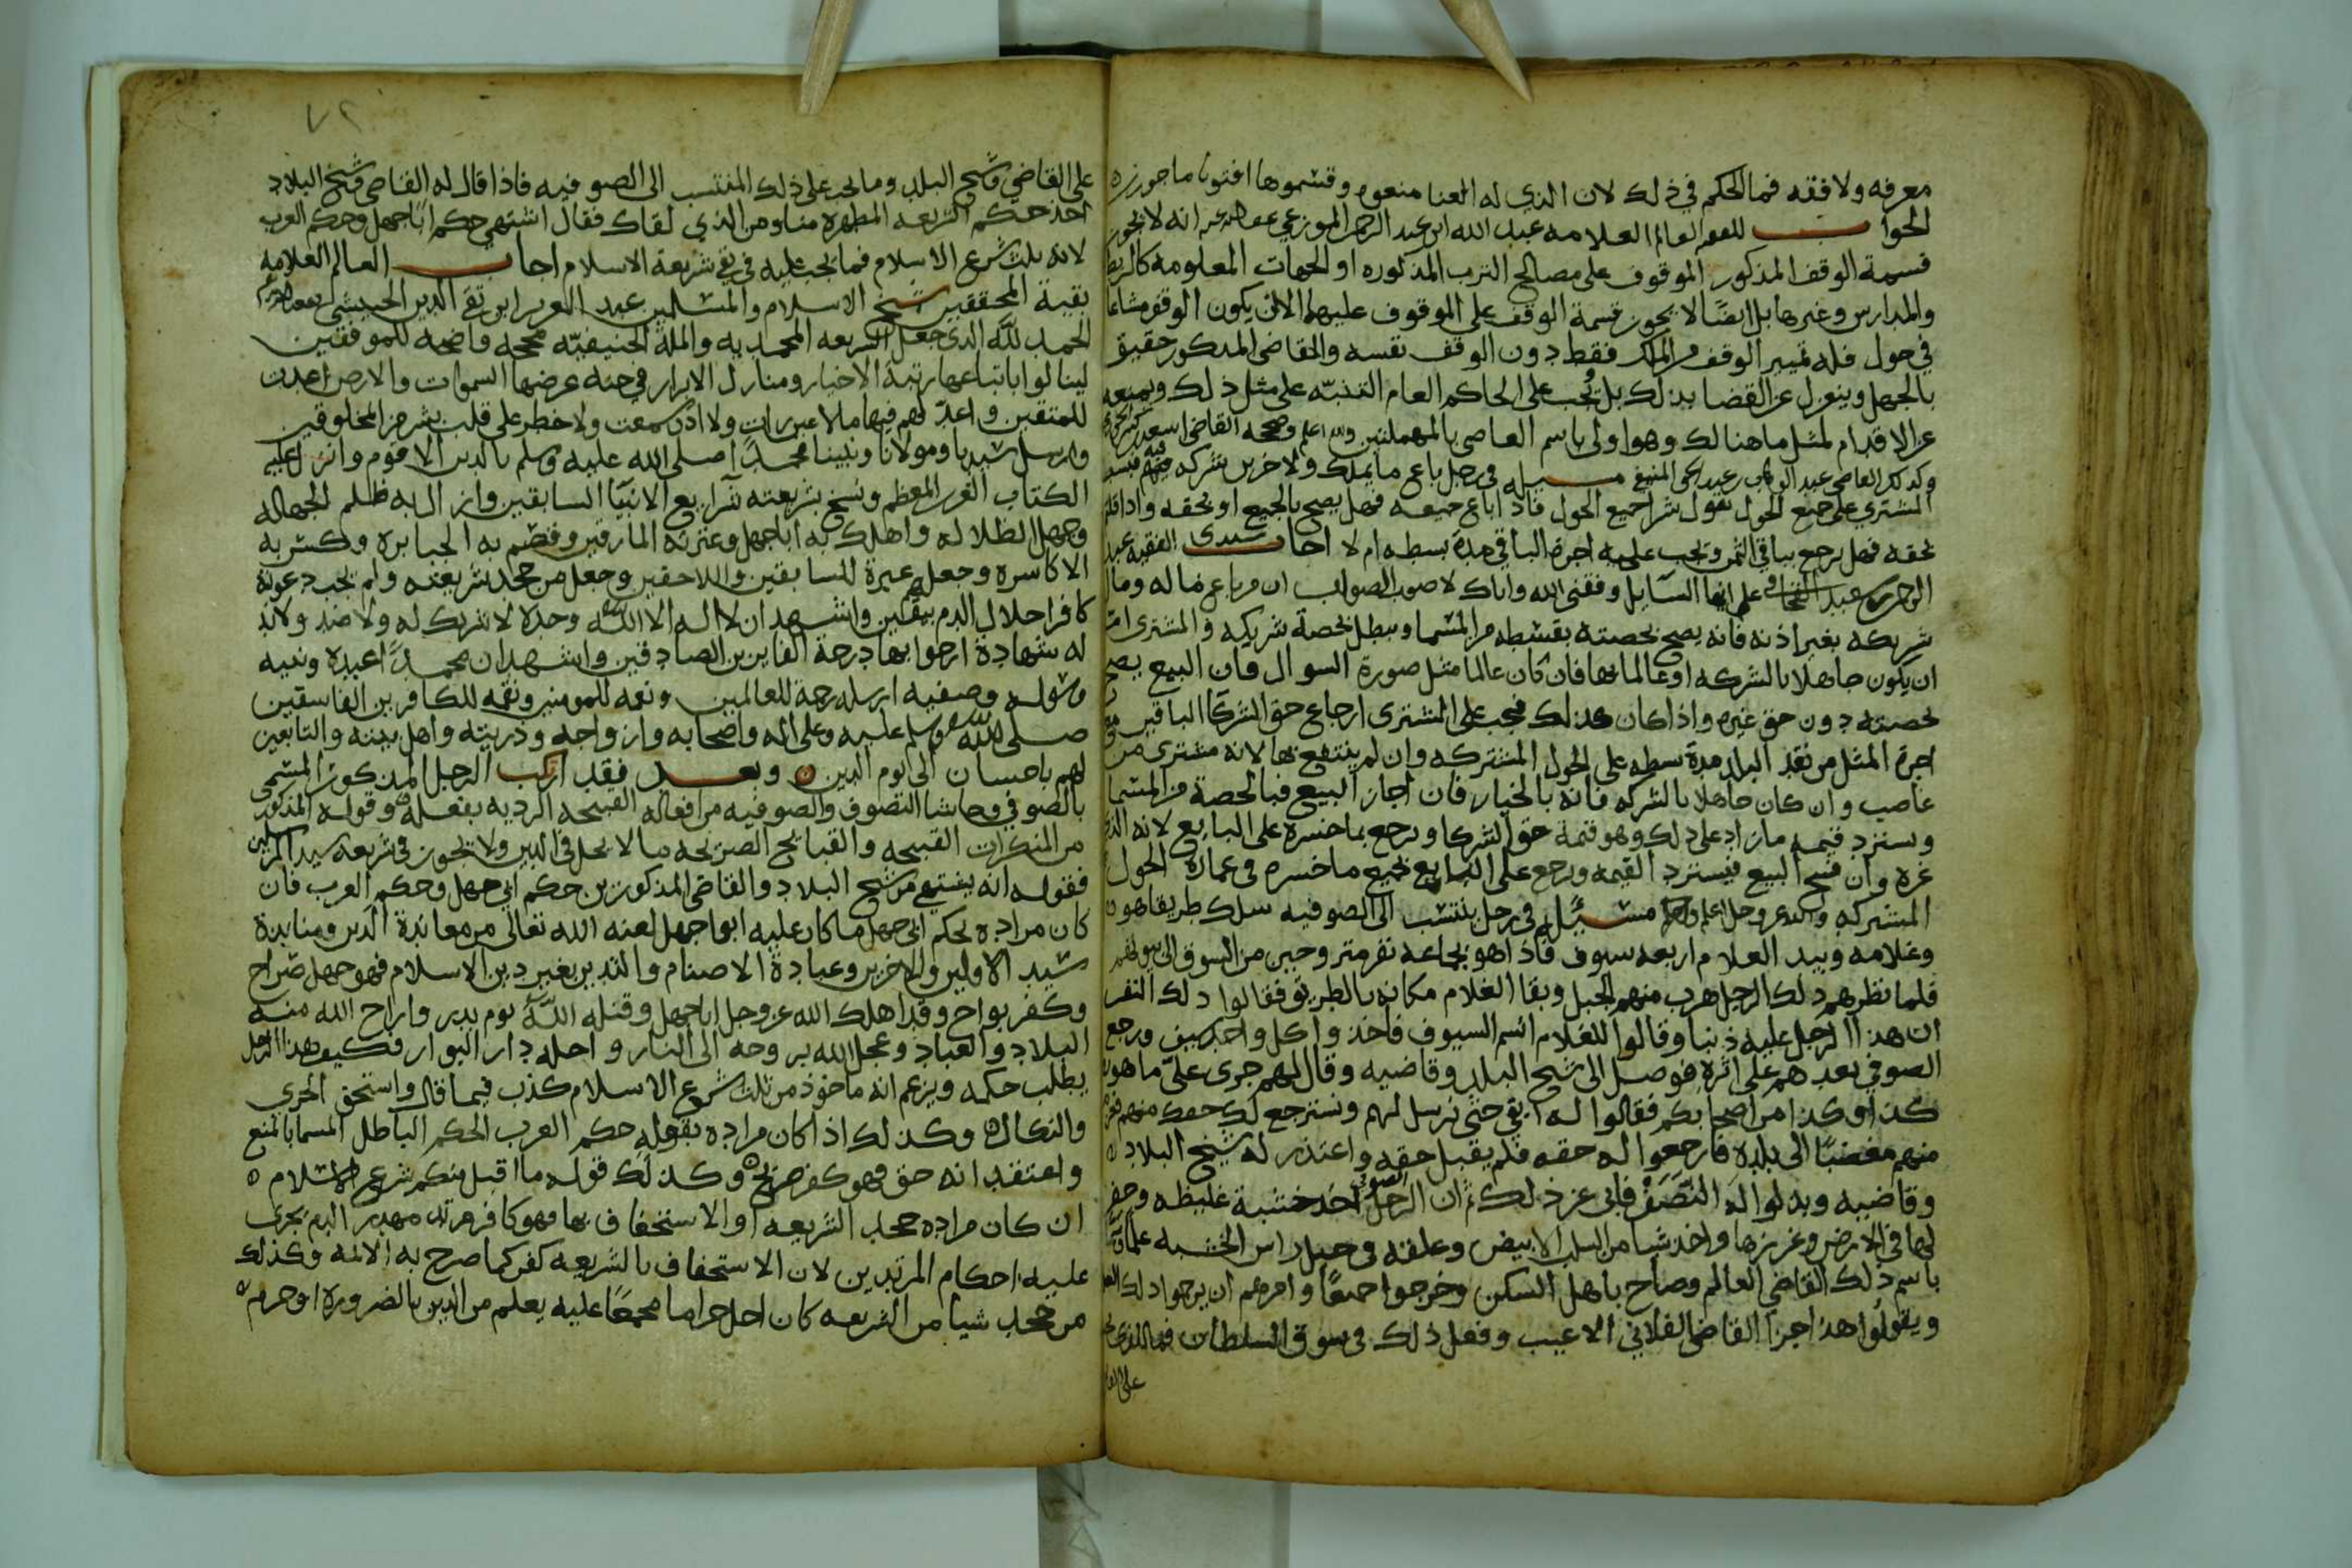 معرفه ولا فقه فما الحكم في ذلك لان الذي له العنا منعوه وقسموها افتونا ماجورين
الجواب للفقيه العالم العلامه عبد الله ابن عبد الرحمن الموزعي عفا الله عنه انه لا يجوز
قسمة الوقف المذكور الموقوف على مصالح الترب المذكوره او الجهات المعلومه كالربط
والمدارس وغيرها بل ايضًا لا يجوز قسمة الوقف على الموقوف عليهم الا ان يكون الوقف مشاعا
في حول فله تمييز الوقف من الملك فقط دون الوقف نفسه والقاضي المذكور حقيق
بالجهل وينعزل عن القضا بذلك بل يجب على الحاكم العام التنبّه على مثل ذلك ويمنعه
عن الاقدام لمثل ما هنالك وهو اولى باسم العاصي بالمهملتين والله اعلم وصححه القاضي اسعد
وكذلك القاضي عبد الوهاب مسيله في رجل باع ما يملك ولاخرين شركه فيه
المشتري على جميع الحول يقول شرا جميع الحول فاذا باع جميعه فهل يصح بالجميع او بحقه واذا قلتم
بحقه فهل يرجع بباقي الثمن ويجب عليه اجرة الباقي مدة بسطه ام لا اجاب سيدي الفقيه عبد
الرحمن عبد اعلم ايها السايل وفقني الله واياك لاصوب الصواب ان من باع ماله ومال
شريكه بغير اذنه فانه يصح بحصته بقسطه من المسما ويبطل بحصة شريكه والمشتري اما
ان يكون جاهلا بالشركه او عالما بها فان كان عالما مثل صورة السوال فان البيع يصح
بحصته دون حق غيره واذا كان كذلك فيجب على المشتري ارجاع حق الشركا الباقين مع
اجرة المثل من نقد البلد مدة بسطه على الحول المشتركه وان لم ينتفع بها لانه مشتري من
غاصب وان كان جاهلا بالشركه فانه بالخيار فان اجاز البيع فبالحصة من المسما
ويسترد قيمه ما زاد على ذلك وهو قيمة حق الشركا ويرجع بما خسره على البايع لانه الذي
غره وان فسخ البيع فيسترد القيمه ويرجع على البايع بجميع ما خسره في عمارة الحول
المشتركه والله عز وجل اعلم مسيله في رجل ينتسب الى الصوفيه سلك طريقا هو
وغلامه وبيد الغلام اربعه سيوف فاذا هو بجماعه نفر متروحين من السوق الى بيوتهم
فلما نظرهم ذلك الرجل هرب منهم الجبل وبقا الغلام مكانه بالطريق فقالوا ذلك النفر
ان هذا الرجل عليه ذنبا وقالوا للغلام السيوف فاخذوا كل واحد سيف ورجع
الصوفي بعدهم على اثره فوصل الى شيخ البلد وقاضيه وقال لهم جرى عليّ ما هو
كذا وكذا من اصحابكم فقالوا له ابقى حتى نرسل لهم ونسترجع لك حقك منهم
منهم مغضبًا الى بلده فارجعوا له حقه فلم يقبل حقه واعتذر له شيخ البلاد
وقاضيه وبذلوا له النَّصَف فابى عن ذلك ثم ان الرجل الصوفي اخذ خشبة غليظه وحفر
لها في الارض وغرزها واخذ شيا من البز الابيض وعلقه في حبل راس الخشبه علمًا
باسم ذلك القاضي العالم وصاح باهل السكن وخرجوا جميعًا وامرهم ان يرجموا ذلك
ويقولوا هذا جزا القاضي الفلاني الاعيب وفعل ذلك في سوق السلطان فما الذي يجب
على القا
٧٢
على القاضي وشيخ البلد وما يجب على ذلك المنتسب الى الصوفيه فاذا قال له القاضي وشيخ البلاد
خذ حكم الشريعه المطهره منا ومن الذي لقاك فقال اشتهي حكم اباجهل وحكم العرب
لانه ثلث شرع الاسلام فما يجب عليه في شريعة الاسلام اجاب العالم العلامه
بقية المحققين شيخ الاسلام والمسلمين عبد العزيز ابن تقي الدين الحبيشي
الحمد لله الذي جعل الشريعه المحمديه والملة الحنيفيّه محجه واضحه للموفقين
لينالوا باتباعها رتبة الاخيار ومنازل الابرار في جنه عرضها السموات والارض اعدت
للمتقين واعدّ لهم فيها ما لا عين رات ولا اذن سمعت ولا خطر على قلب بشر من المخلوقين
وارسل سيدنا ومولانا ونبينا محمدًا صلى الله عليه وسلم بالدين الاقوم وانزل عليه
الكتاب العزيز المعظم ونسخ بشريعته شرايع الانبيا السابقين وازال به ظلم الجهاله
وجهل الظلاله واهلك به اباجهل وعترته المارقين وقصم به الجبابره وكسر به
الاكاسره وجعلهم عبرة للسابقين واللاحقين وجعل من جحد شريعته ولم يجب دعوته
كافرا حلال الدم بيقين واشهد ان لا اله الا الله وحده لا شريك له ولا ضد ولا ند
له شهادة ارجوا بها درجة الفايزين الصادقين واشهد ان محمدًا عبده ونبيه
ورسوله وصفيه ارسله رحمة للعالمين ونعمه للمومنين ونقمه للكافرين الفاسقين
صلى الله وسلم عليه وعلى اله واصحابه وازواجه وذريته واهل بيته والتابعين
لهم باحسان الى يوم الدين وبعد فقد ارتكب الرجل المذكور المسمى
بالصوفي وحاشا التصوف والصوفيه من افعاله القبيحه الرديه بفعله وقوله المذكور
من المنكرات القبيحه والقبايح الصريحه ما لا يحل في الدين ولا يجوز في شريعه سيد المرسلين
فقوله انه يشتهي من شيخ البلاد والقاضي المذكورين حكم ابي جهل وحكم العرب فان
كان مراده بحكم ابي جهل ما كان عليه ابوا جهل لعنه الله تعالى من معاندة الدين ومنابذة
سيد الاولين والاخرين وعبادة الاصنام والتدين بغير دين الاسلام فهو جهل صراح
وكفر بواح وقد اهلك الله عز وجل اباجهل وقتله الله يوم بدر واراح الله منه
البلاد والعباد وعجل الله بروحه الى النار واحله دار البوار فكيف هذا الرجل
يطلب حكمه ويزعم انه ماخوذ من ثلث شرع الاسلام كذب فيما قال واستحق الخزي
والنكال وكذلك اذا كان مراده بقوله حكم العرب الحكم الباطل المسما بالمنع
واعتقد انه حق فهو كفر صريح وكذلك قوله ما اقبل منكم شرع الاسلام
ان كان مراده جحد الشريعه او الاستخفاف بها فهو كافر مرتد مهدر الدم يجرى
عليه احكام المرتدين لان الاستخفاف بالشريعه كفر كما صرح به الائمه وكذلك
من جحد شيا من الشريعه كان احل حراما مجمعًا عليه يعلم من الدين بالضروره او حرم